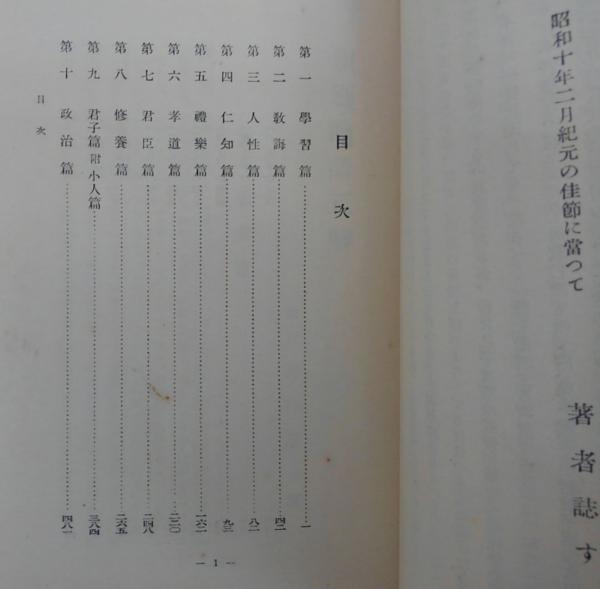 昭和十年二月紀元の佳節に當つて
著者誌す
目次
第一 學習篇……一
第二 敎誨篇……四二
第三 人性篇……八二
第四 仁知篇……九三
第五 禮樂篇……一六二
第六 孝道篇……二三〇
第七 君臣篇……二四八
第八 修養篇……二六五
第九 君子篇 附 小人篇……三八四
第十 政治篇……四八一
目次
— 1 —